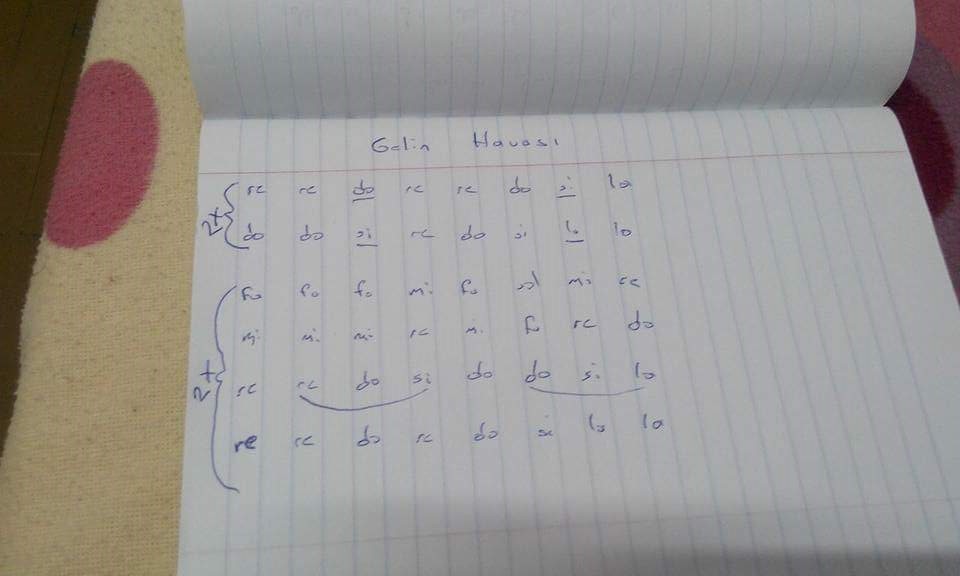 Gelin Havası
2x { re re do re re do si la
do do si re do si la la
2x { fa fa fa mi fa sol mi re
mi mi mi re mi fa re do
re re do si do do si la
re re do re do si la la